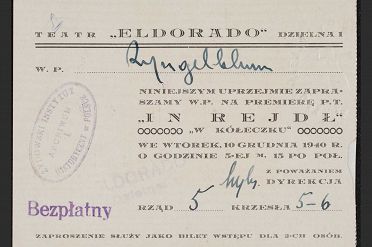 TEATR „ELDORADO" DZIELNA 1
W. P. Ryngelblum
NINIEJSZYM UPRZEJMIE ZAPRA-
SZAMY W.P. NA PREMIERĘ P.T.
„IN REJDŁ"
„W KÓŁECZKU"
WE WTOREK, 10 GRUDNIA 1940 R.
O GODZINIE 3-EJ M. 15 PO POŁ.
Z POWAŻANIEM
DYREKCJA
RZĄD 5 KRZESŁA 5-6
Bezpłatny
ZAPROSZENIE SŁUŻY JAKO BILET WSTĘPU DLA 2-CH OSÓB.
ŻYDOWSKI INSTYTUT
HISTORYCZNY W POLSCE
ARCHIWUM
ELDORADO